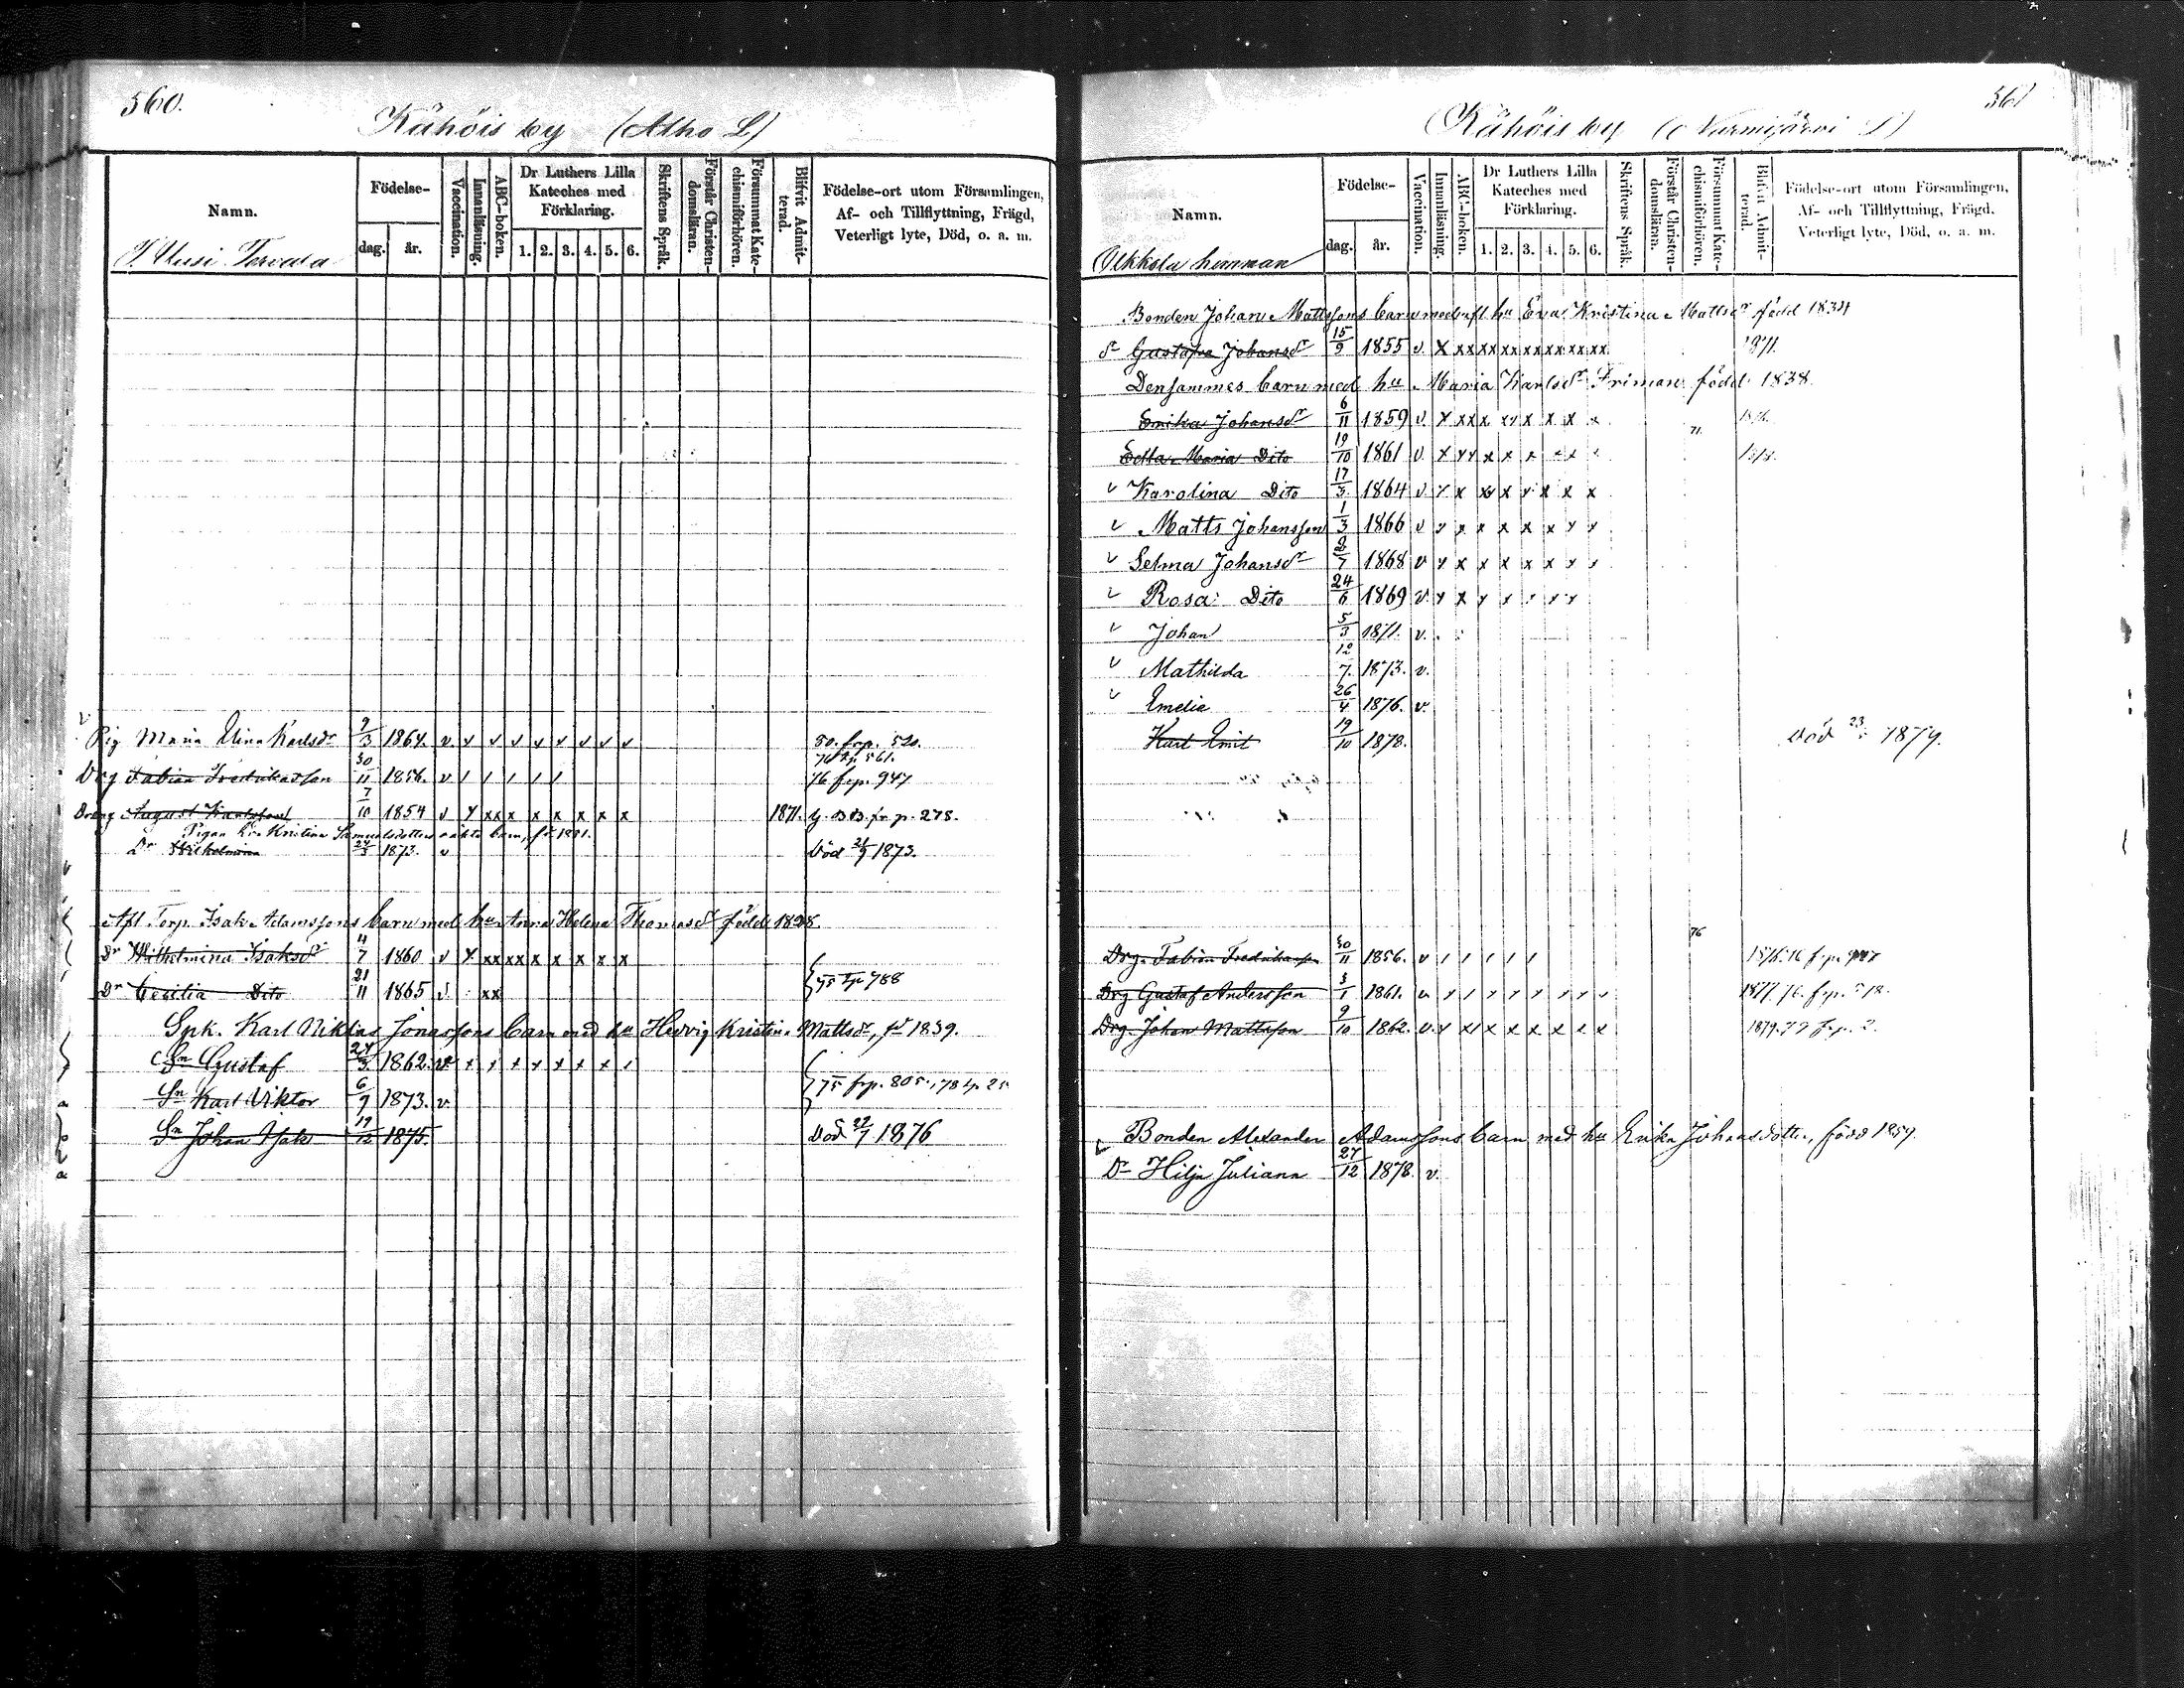 560.
Kähöis by (Alho L)
Namn.
Födelse-
dag.
år.
Vaccination.
Innanläsning.
ABC-boken.
Dr Luthers Lilla Kateches med Förklaring.
1. 2. 3. 4. 5. 6.
Skriftens Språk.
Förstår Christen-domsläran.
Försummat Kate-chismiförhören.
Blifvit Admit-terad.
Födelse-ort utom Församlingen,
Af- och Tillflyttning, Frägd,
Veterligt lyte, Död, o. a. m.
T. Uusi Torvala
Pig Maria Elina Karlsdr 9/3 1864. v v v v v v v v v 80. frp. 520.
76 tp 561.
Drg Fabian Fredriksson 30/11 1856. v / / / / / / 76 frp. 947
Dreng August Karlsson 7/10 1854 v x xx x x x x x x 1871. g. B.B. fr p. 278.
Pigan Kristina Samuelsdotters oäkta barn,
Dr Wilhelmina 24/5 1873. v Död 21/9 1873.
Afl Torp. Isak Adamssons barn med hu Anna Helena Thomasdr född 1828
Dr Wilhelmina Isaksdr 4/7 1860 v x xx xx x x x x x
Dr Cecilia Dito 21/11 1865 v . xx 75 tp 788
Spk. Karl Niklas Jonassons barn med hu Hedvig Kristina Mattsdr, fd 1839.
Sn Gustaf 24/3 1862. v x x x x x x x /
Sn Karl Viktor 6/9 1873. v. 75 frp. 805., 78 tp 25
Sn Johan Isak 19/12 1875. Död 27/7 1876
561
Kähöis by (Nurmijärvi L)
Namn.
Födelse-
dag.
år.
Vaccination.
Innanläsning.
ABC-boken.
Dr Luthers Lilla Kateches med Förklaring.
1. 2. 3. 4. 5. 6.
Skriftens Språk.
Förstår Christen-domsläran.
Försummat Kate-chismiförhören.
Blifvit Admit-terad.
Födelse-ort utom Församlingen,
Af- och Tillflyttning, Frägd,
Veterligt lyte, Död, o. a. m.
Ulkkola hemman
Bonden Johan Mattssons barn med afl hu Eva Kristina Mattsdr född 1834
dr Gustafva Johansdr 15/9 1855 v. x xx xx xx xx xx xx xx 1871.
Densammes barn med hu Maria Karlsdr Friman född 1838.
Emilia Johansdr 6/11 1859 v. x xx x xx x x x x
Edla Maria Dito 19/10 1861 v. x xx x x x x x x 71.
Karolina Dito 17/3 1864 v. x x xx x x x x x
Matts Johansson 1/3 1866 v x x x x x x x x
Selma Johansdr 2/7 1868 v x x x x x x x x
Rosa Dito 24/6 1869 v. x x x x x x x
Johan 5/3 1871. v.
Mathilda 12/7 1873. v.
Emelie 26/4 1876. v.
Karl Emil 19/10 1878. död 23 1879.
76
Drg. Fabian Fredriksson 30/11 1856. v / / / / / /
Drg Gustaf Andersson 1861. v / / / / / / / / 1877. 76. frp.
Drg. Johan Mattsson 9/10 1862. v. x x x x x x x x 1879. 77 frp. 2.
Bonden Alexander Adamssons barn med hu Erika Johansdotter, född 1859.
Dr Hilja Juliana 27/12 1878. v.